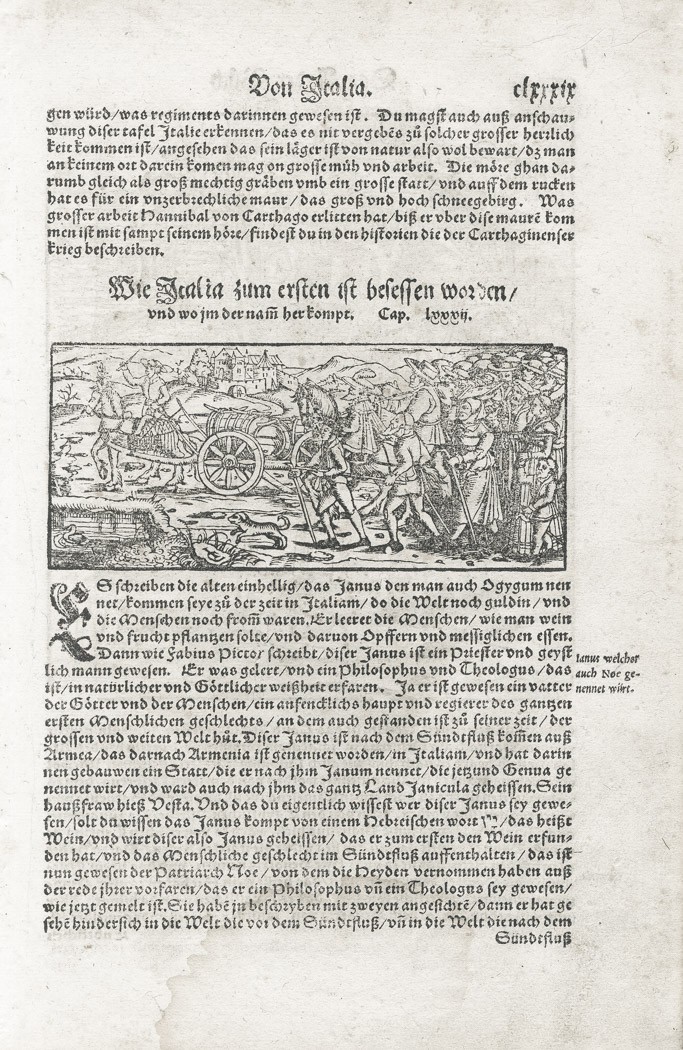 Von Italia. clxxxix
gen würd/was regiments darinnen gewesen ist. Du magst auch auß anschau-
wung diser tafel Italie erkennen/das es nit vergebēs zů solcher grosser herrlich
keit kommen ist/angesehen das sein läger ist von natur also wol bewart/dz man
an keinem ort darein komen mag on grosse müh vnd arbeit. Die möre ghan da-
rumb gleich als groß mechtig gräben vmb ein grosse statt/vnd auff dem rucken
hat es für ein vnzerbrechliche maur/das groß vnd hoch schneegebirg. Was
grosser arbeit Hannibal von Carthago erlitten hat/biß er vber dise maurē kom
men ist mit sampt seinem höre/findest du in den historien die der Carthaginenser
krieg beschreiben.
Wie Italia zum ersten ist besessen worden/
vnd wo jm der nam̄ her kompt. Cap. lxxxij.
ES schreiben die alten einhellig/das Janus den man auch Ogygum nen
net/kommen seye zů der zeit in Italiam/do die Welt noch guldin/vnd
die Menschen noch from̄ waren. Er leeret die Menschen/wie man wein
vnd frucht pflantzen solte/vnd daruon Opffern vnd messiglichen essen.
Dann wie Fabius Pictor schreibt/diser Janus ist ein Priester vnd geyst
lich mann gewesen. Er was gelert/vnd ein Philosophus vnd Theologus/das
ist/in natürlicher vnd Göttlicher weißheit erfaren. Ja er ist gewesen ein vatter
der Götter vnd der Menschen/ein anfencklichs haupt vnd regierer des gantzen
ersten Menschlichen geschlechts/an dem auch gestanden ist zů seiner zeit/der
grossen vnd weiten Welt hůt. Diser Janus ist nach dem Sündtfluß kom̄en auß
Armea/das darnach Armenia ist genennet worden/in Italiam/vnd hat darin
nen gebauwen ein Statt/die er nach jhm Janum nennet/die jetzund Genua ge
nennet wirt/vnd ward auch nach jhm das gantz Land Janicula geheissen. Sein
haußfraw hieß Vesta. Vnd das du eigentlich wissest wer diser Janus sey gewe-
sen/solt du wissen das Janus kompt von einem Hebreischen wort יין/das heißt
Wein/vnd wirt diser also Janus geheissen/das er zum ersten den Wein erfun-
den hat/vnd das Menschliche geschlecht im Sündtfluß auffenthalten/das ist
nun gewesen der Patriarch Noe/von dem die Heyden vernommen haben auß
der rede jhrer vorfaren/das er ein Philosophus vn̄ ein Theologus sey gewesen/
wie jetzt gemelt ist. Sie habē jn beschryben mit zweyen angesichtē/dann er hat ge
sehē hindersich in die Welt die vor dem Sündtfluß/vn̄ in die Welt die nach dem
Sündtfluß
Ianus welcher
auch Noe ge-
nennet wirt.